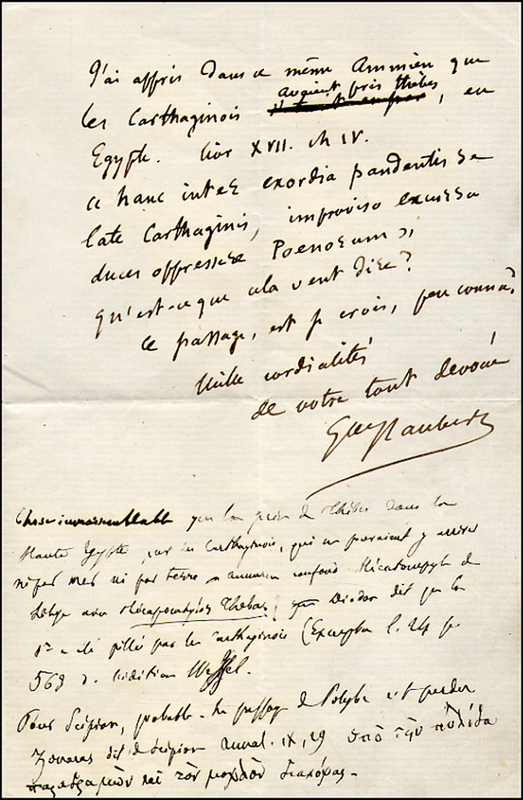 J'ai appris dans ce même Ammien que
les Carthaginois avaient pris Thèbes, en
Egypte. livr XVII. ch IV.
« hanc inter exordia pandentis se
late Carthaginis, improviso excursu
duces oppressere Poenorum »,
qu'est-ce que cela veut dire?
Ce passage, est je crois, peu connu?
Mille cordialités
de votre tout dévoué
Gve Flaubert
Chose invraisemblable que la prise de Thèbes dans la
Haute Egypte, par les Carthaginois, qui ne pouvaient y arriver
ni par mer ni par terre. Ammien confond Hécatompyle de
Libye avec Thebas Diodor dit que la
1re a été pillée par les Carthaginois (Excerpta l. 24 p.
568 d. l'édition Wessel.
Pour Scipion, probable. le passage de Polybe est perdu
Zonaras dit de Scipion Annal. IX, 29 ὑπὸ τὴν πυλίδα
καὶ τὸν μοχλὸν διακόψας.